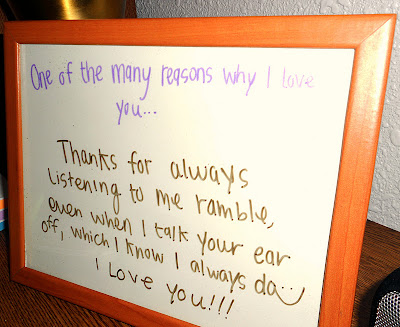 One of the many reasons why I love
you...
Thanks for always
listening to me ramble,
even when I talk your ear
off, which I know I always do..
I Love you!!!